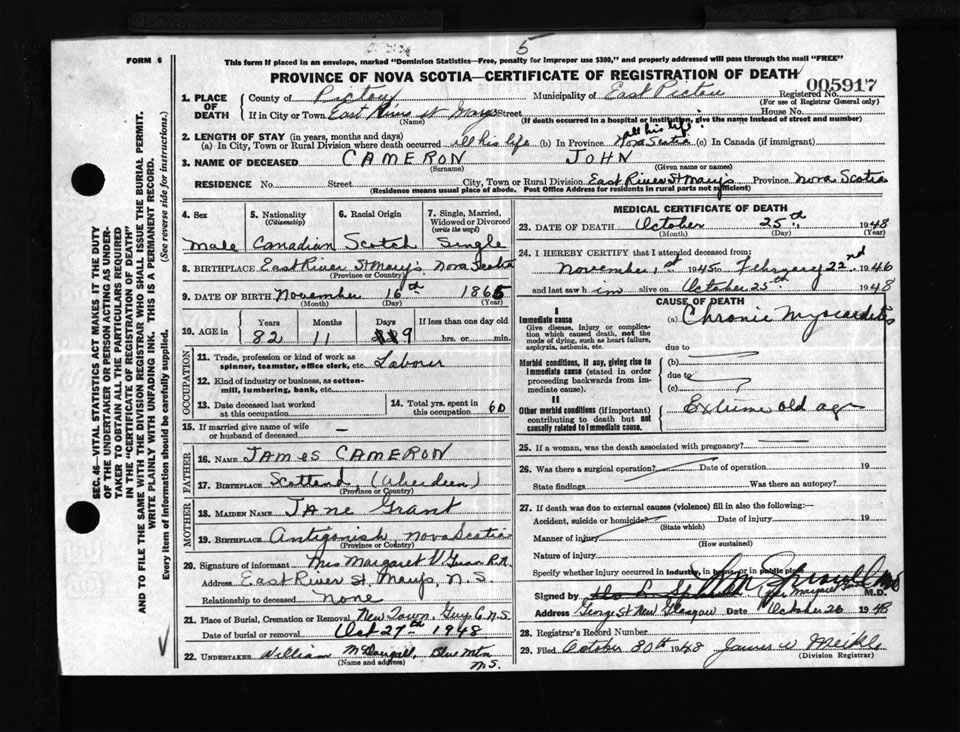 5
FORM 6
This form if placed in an envelope, marked "Dominion Statistics—Free, penalty for improper use $300," and properly addressed will pass through the mail "FREE"
PROVINCE OF NOVA SCOTIA—CERTIFICATE OF REGISTRATION OF DEATH
005917
Registered No.
(For use of Registrar General only)
1. PLACE OF DEATH
County of Pictou Municipality of East Pictou
If in City or Town East River St Marys Street House No.
(Name) (If death occurred in a hospital or institution, give the name instead of street and number)
2. LENGTH OF STAY (in years, months and days)
(a) In City, Town or Rural Division where death occurred all his life (b) In Province all his life. Nova Scotia (c) In Canada (if immigrant)
3. NAME OF DECEASED CAMERON JOHN
(Surname) (Given name or names)
RESIDENCE No. Street City, Town or Rural Division East River St Mary's Province Nova Scotia
(Residence means usual place of abode. Post Office Address for residents in rural parts not sufficient)
4. Sex Male
5. Nationality (Citizenship) Canadian
6. Racial Origin Scotch
7. Single, Married, Widowed or Divorced (write the word) Single
8. BIRTHPLACE East River St Mary's Nova Scotia
(Province or Country)
9. DATE OF BIRTH November 16th 1865
(Month) (Day) (Year)
10. AGE in Years Months Days If less than one day old
82 11 9 hrs. or min.
OCCUPATION
11. Trade, profession or kind of work as spinner, teamster, office clerk, etc. Laborer
12. Kind of industry or business, as cotton-mill, lumbering, bank, etc.
13. Date deceased last worked at this occupation
14. Total yrs. spent in this occupation 60
15. If married give name of wife or husband of deceased —
FATHER
16. NAME JAMES CAMERON
17. BIRTHPLACE Scotland, (Aberdeen)
(Province or Country)
MOTHER
18. MAIDEN NAME JANE Grant
19. BIRTHPLACE Antigonish, Nova Scotia
(Province or Country)
20. Signature of informant Mrs Margaret V R.N.
Address East River St. Marys, N.S.
Relationship to deceased none
21. Place of Burial, Cremation or Removal New Town, Guy Co. N.S.
Date of burial or removal Oct 27th 1948
22. UNDERTAKER William McDougall, Blue Mtn N.S.
(Name and address)
MEDICAL CERTIFICATE OF DEATH
23. DATE OF DEATH October 25th 1948
(Month) (Day) (Year)
24. I HEREBY CERTIFY that I attended deceased from:
November 1st 1945 to February 22nd 1946
and last saw him alive on October 25th 1948
CAUSE OF DEATH
I
Immediate cause (a) Chronic Myocarditis
Give disease, injury or complication which caused death, not the mode of dying, such as heart failure, asphyxia, asthenia, etc.
due to
Morbid conditions, if any, giving rise to immediate cause (stated in order proceeding backwards from immediate cause).
(b)
due to
(c)
II
Other morbid conditions (if important) contributing to death but not causally related to immediate cause.
Extreme old age
25. If a woman, was the death associated with pregnancy?
26. Was there a surgical operation? Date of operation 19
State findings Was there an autopsy?
27. If death was due to external causes (violence) fill in also the following:—
Accident, suicide or homicide? Date of injury 19
(State which)
Manner of injury
(How sustained)
Nature of injury
Specify whether injury occurred in industry, in home, or in public place
Signed by M.D.
Address George St New Glasgow Date October 26 1948
28. Registrar's Record Number
29. Filed October 30th 1948 James W Meikle
(Division Registrar)
SEC. 46—VITAL STATISTICS ACT MAKES IT THE DUTY
OF THE UNDERTAKER OR PERSON ACTING AS UNDER-
TAKER TO OBTAIN ALL THE PARTICULARS REQUIRED
IN THE "CERTIFICATE OF REGISTRATION OF DEATH"
AND TO FILE THE SAME WITH THE DIVISION REGISTRAR WHO SHALL ISSUE THE BURIAL PERMIT.
WRITE PLAINLY WITH UNFADING INK. THIS IS A PERMANENT RECORD.
Every item of information should be carefully supplied. (See reverse side for instructions.)